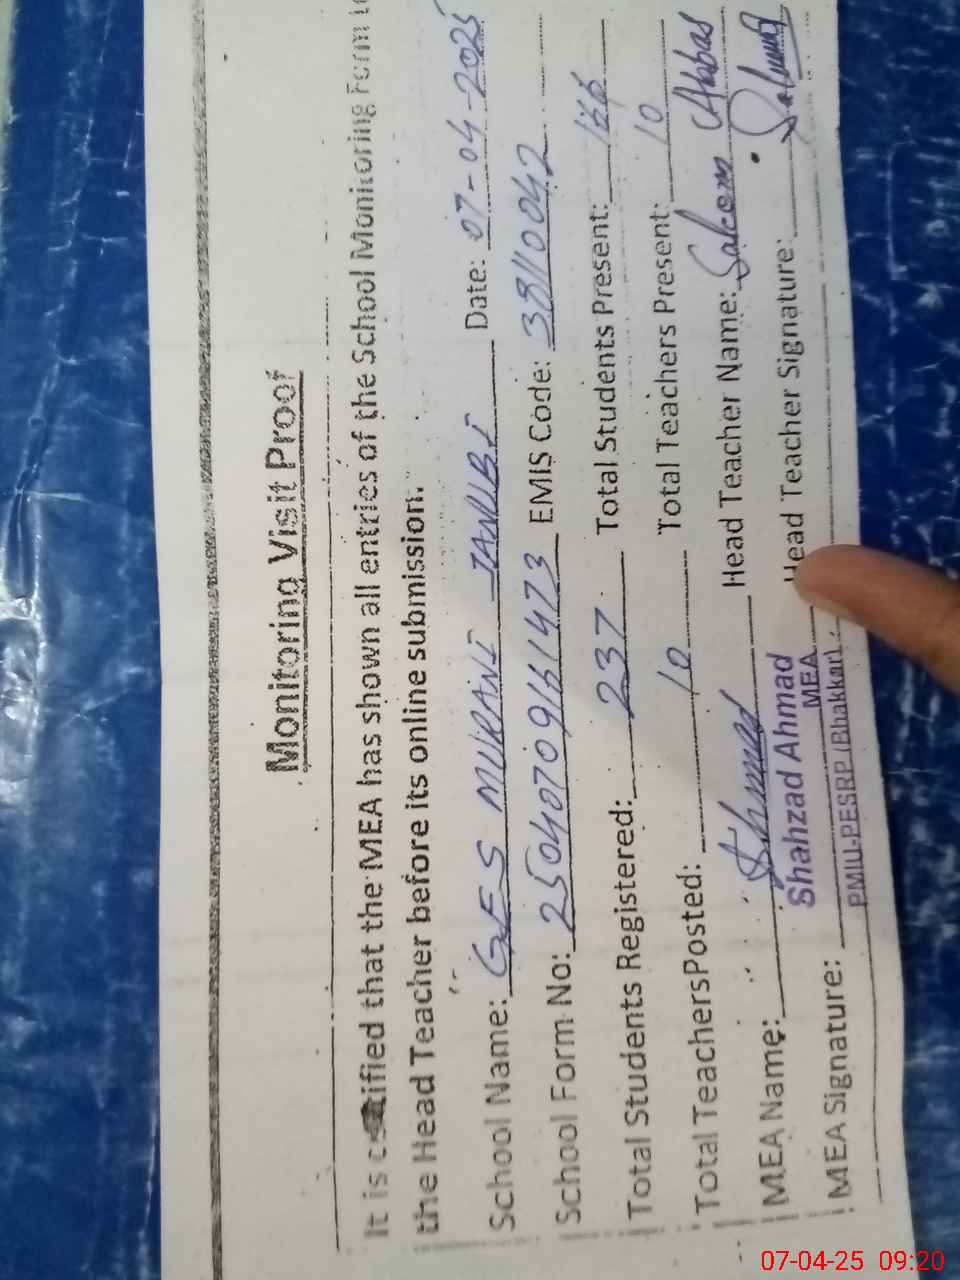 Monitoring Visit Proof
It is certified that the MEA has shown all entries of the School Monitoring Form to
the Head Teacher before its online submission.
School Name: GES MURANI JANUBI Date: 07-04-2025
School Form No: 2504070916 1473 EMIS Code: 38110042
Total Students Registered: 237 Total Students Present:
Total TeachersPosted: 10 Total Teachers Present: 10
MEA Name: Head Teacher Name: Saleem Abbas
Shahzad Ahmad
MEA
MEA Signature: Head Teacher Signature:
PMIU-PESRP (Bhakkar)
07-04-25 09:20